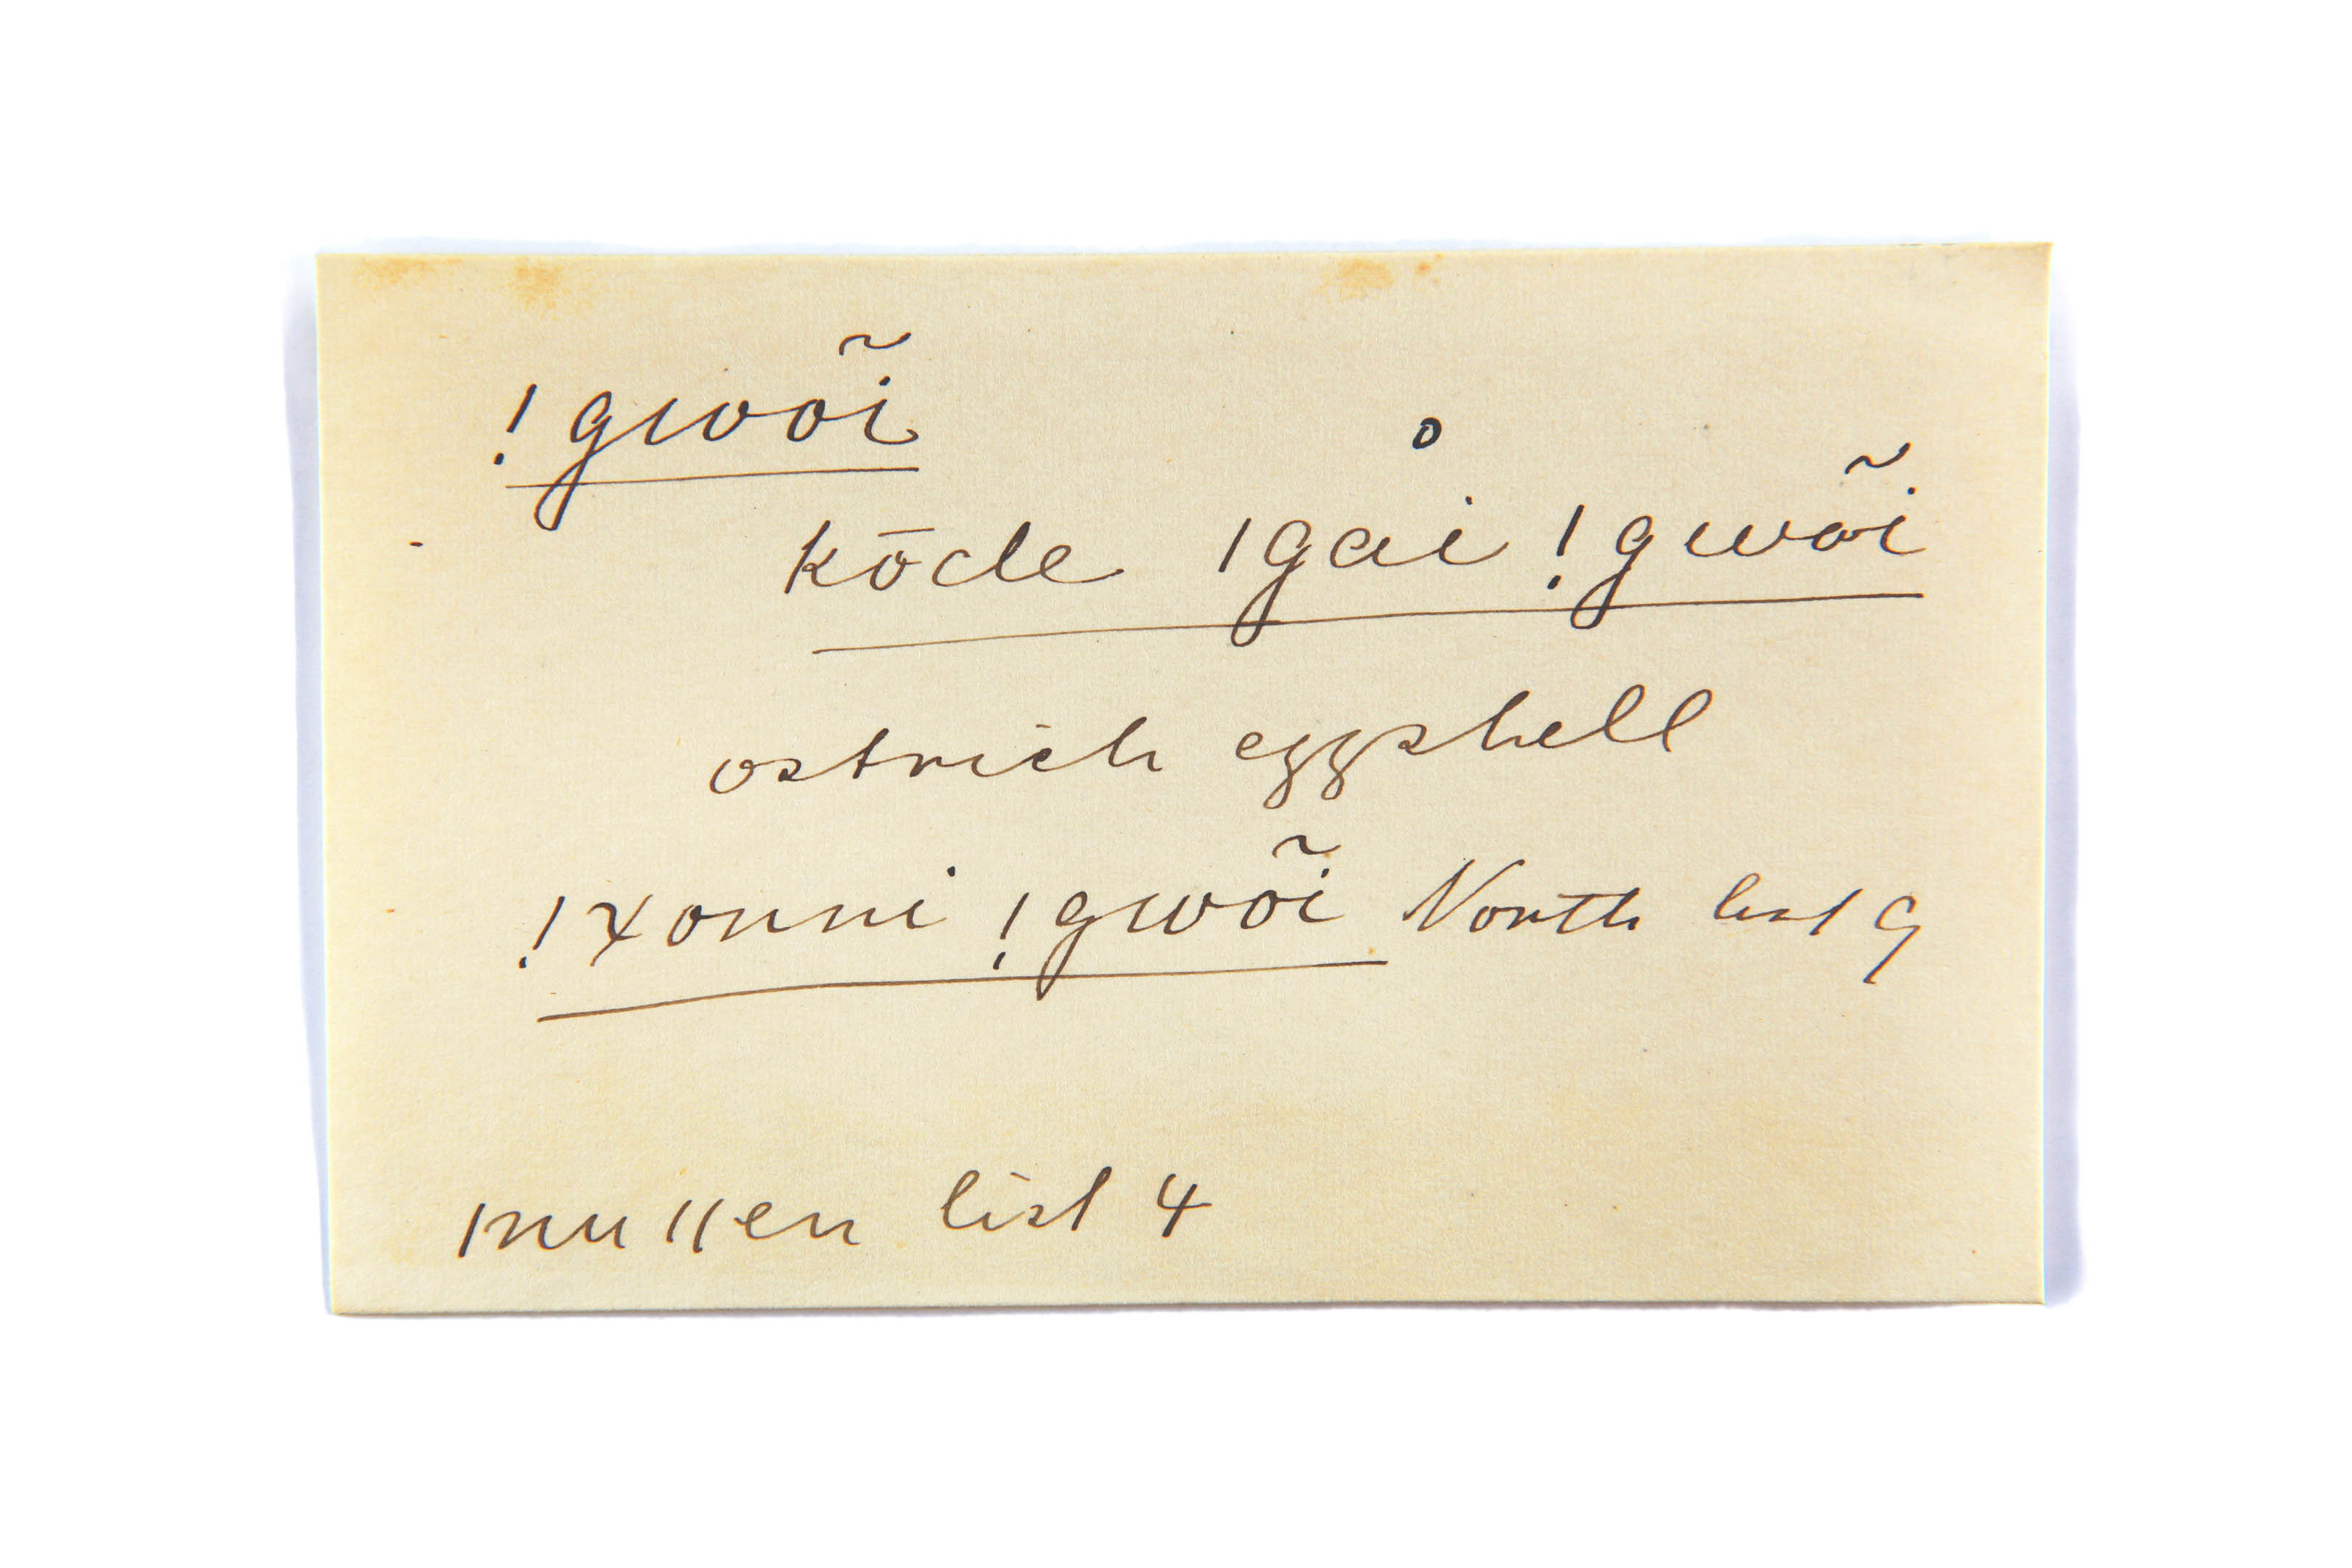 !gwoĩ
kōde ǀgåi !gwoĩ
ostrich eggshell
!xonni !gwoĩ North list 9
ǀnuǁen list 4